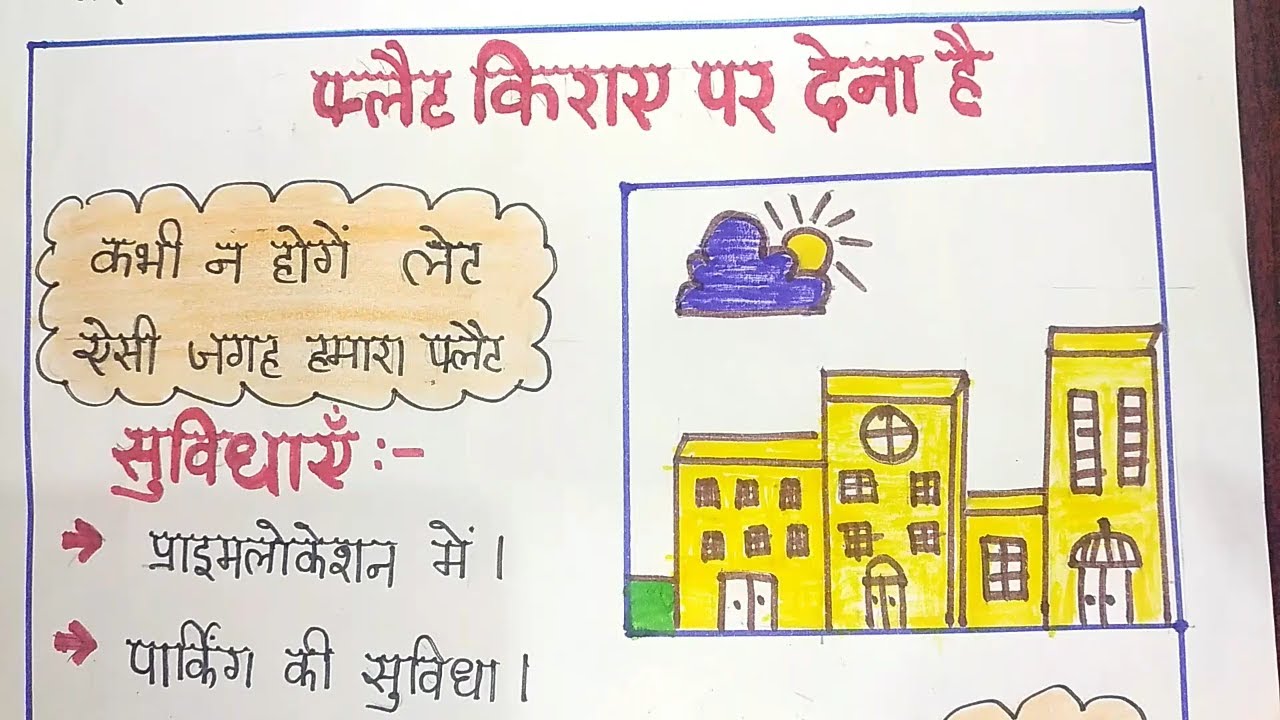 फ्लैट किराए पर देना है
कभी न होगें लेट
ऐसी जगह हमारा फ्लैट
सुविधाएँ :-
➔ प्राइमलोकेशन में ।
➔ पार्किंग की सुविधा ।